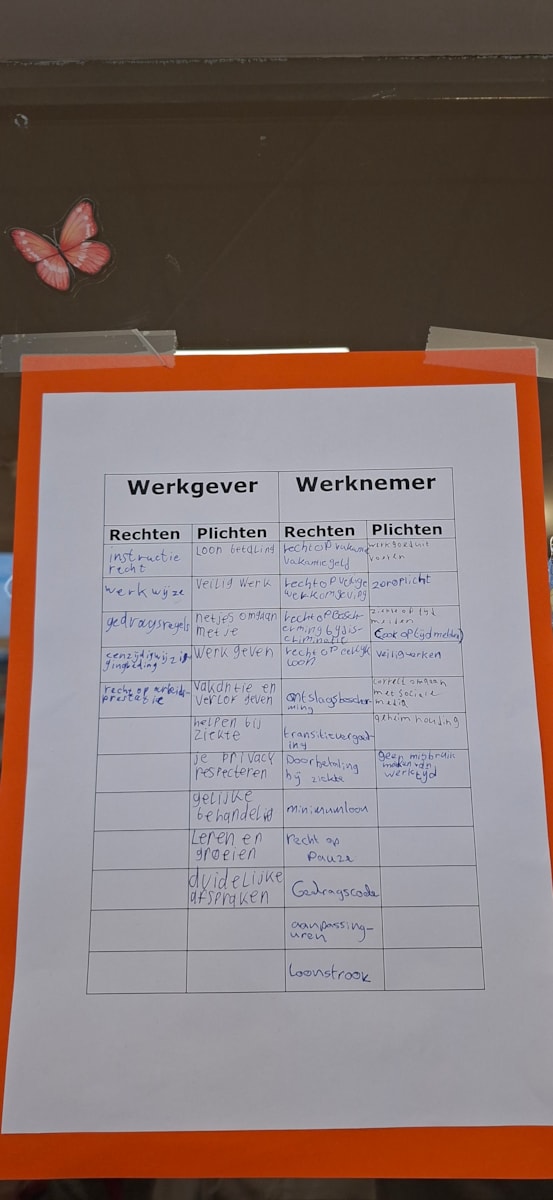 Werkgever Werknemer
Rechten Plichten Rechten Plichten
instructie
recht
Loon betaling
recht op vakantie
vakantiegeld
werk goed uit
voeren
werkwijze
veilig werk
recht op veilige
werkomgeving
zorgplicht
gedragsregels
netjes omgaan
met je
recht op besch-
erming bij dis-
criminatie
ziekte op tijd
melden
(ook op tijd melden)
eenzijdig wijzi-
gingbeding
werk geven
recht op
loon
veilig werken
recht op arbeids-
prestatie
vakantie en
verlof geven
ontslagsbescher-
ming
correct omgaan
met sociale
media
helpen bij
ziekte
transitievergoed-
ing
geheimhouding
je privacy
respecteren
Doorbetaling
bij ziekte
geen misbruik
maken van
werktijd
gelijke
behandelid
minimumloon
Leren en
groeien
recht op
pauze
duidelijke
afspraken
Gedragscode
aanpassing-
uren
Loonstrook